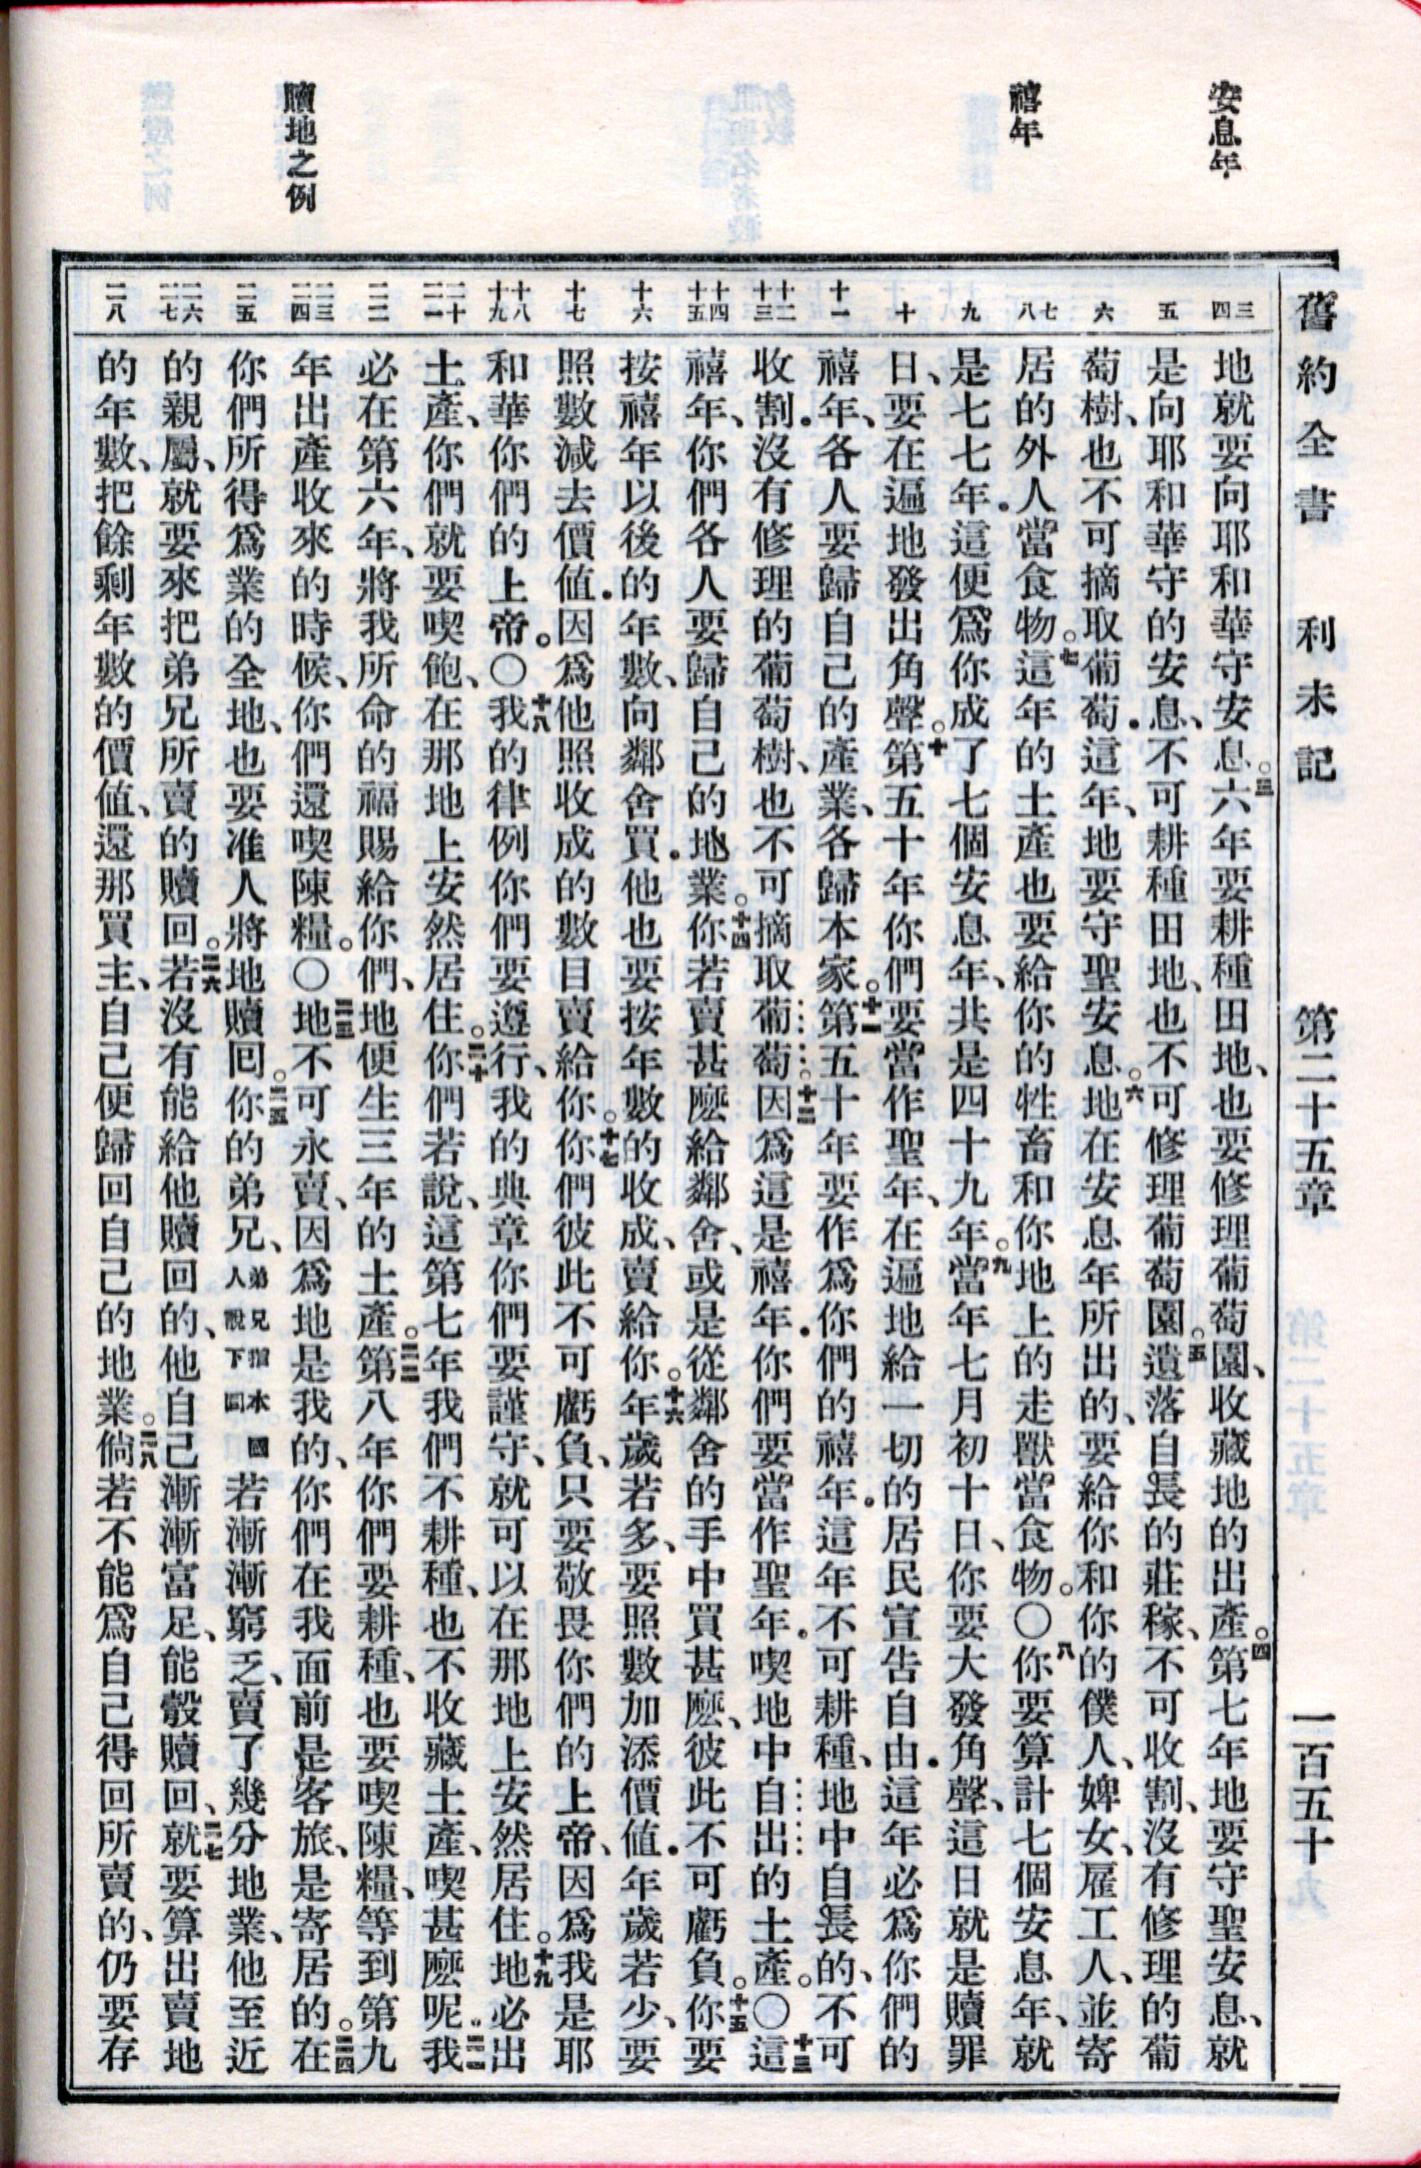 安息年
禧年
贖地之例
舊約全書 利未記 第二十五章 一百五十
三 四
五
六
七 八
九
十
十一
十二 十三
十四 十五
十六
十七
十八 十九
二十 二一
二二
二三 二四
二五
二六 二七
二八
地就要向耶和華守安息。三六年要耕種田地、也要修理葡萄園、收藏地的出產。四第七年地要守聖安息、就
是向耶和華守的安息、不可耕種田地、也不可修理葡萄園。五遺落自長的莊稼、不可收割、沒有修理的葡
萄樹、也不可摘取葡萄．這年、地要守聖安息。六地在安息年所出的、要給你和你的僕人、婢女、雇工人、並寄
居的外人當食物。七這年的土產也要給你的牲畜和你地上的走獸當食物。〇八你要算計七個安息年、就
是七七年．這便爲你成了七個安息年、共是四十九年。九當年七月初十日、你要大發角聲、這日就是贖罪
日、要在遍地發出角聲。十第五十年你們要當作聖年、在遍地給一切的居民宣告自由．這年必爲你們的
禧年、各人要歸自己的產業、各歸本家。十一第五十年要作爲你們的禧年．這年不可耕種、地中自長的、不可
收割．沒有修理的葡萄樹、也不可摘取葡萄．十二因爲這是禧年．你們要當作聖年．喫地中自出的土產。〇十三這
禧年、你們各人要歸自己的地業。十四你若賣甚麼給鄰舍、或是從鄰舍的手中買甚麼、彼此不可虧負。十五你要
按禧年以後的年數、向鄰舍買．他也要按年數的收成、賣給你。十六年歲若多、要照數加添價值．年歲若少、要
照數減去價值．因爲他照收成的數目賣給你。十七你們彼此不可虧負、只要敬畏你們的上帝、因爲我是耶
和華你們的上帝。〇十八我的律例你們要遵行、我的典章你們要謹守、就可以在那地上安然居住。十九地必出
土產、你們就要喫飽、在那地上安然居住。二十你們若說、這第七年我們不耕種、也不收藏土產、喫甚麼呢。二一我
必在第六年、將我所命的福賜給你們、地便生三年的土產。二二第八年你們要耕種、也要喫陳糧、等到第九
年出產收來的時候、你們還喫陳糧。〇二三地不可永賣、因爲地是我的、你們在我面前是客旅、是寄居的。二四在
你們所得爲業的全地、也要准人將地贖回。二五你的弟兄、弟兄指本國人說下同若漸漸窮乏、賣了幾分地業、他至近
的親屬、就要來把弟兄所賣的贖回。二六若沒有能給他贖回的、他自己漸漸富足、能彀贖回、二七就要算出賣地
的年數、把餘剩年數的價值、還那買主、自己便歸回自己的地業。二八倘若不能爲自己得回所賣的、仍要存